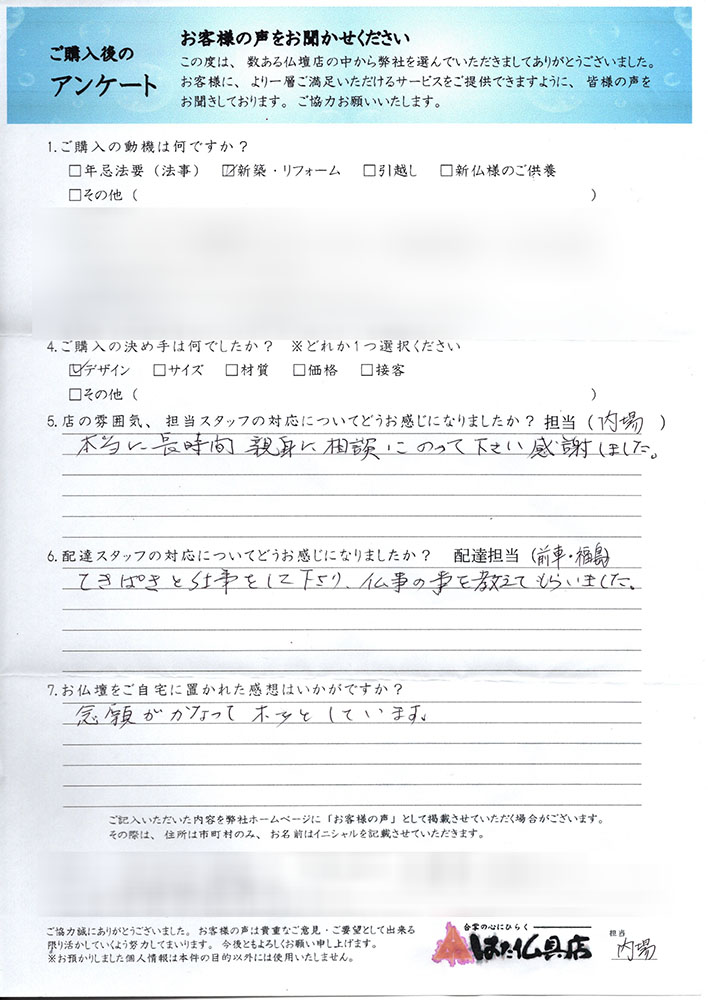 ご購入後の
アンケート
お客様の声をお聞かせください
この度は、数ある仏壇店の中から弊社を選んでいただきましてありがとうございました。
お客様に、より一層ご満足いただけるサービスをご提供できますように、皆様の声を
お聞きしております。ご協力お願いいたします。
1.ご購入の動機は何ですか？
□年忌法要（法事） ☑新築・リフォーム □引越し □新仏様のご供養
□その他（ ）
4.ご購入の決め手は何でしたか？ ※どれか1つ選択ください
☑デザイン □サイズ □材質 □価格 □接客
□その他（ ）
5.店の雰囲気、担当スタッフの対応についてどうお感じになりましたか？ 担当（内場）
本当に長時間親身に相談にのって下さい感謝しました。
6.配達スタッフの対応についてどうお感じになりましたか？ 配達担当（前車・福島）
てきぱきと仕事をして下さり、仏事の事を教えてもらいました。
7.お仏壇をご自宅に置かれた感想はいかがですか？
念願がかなってホッとしています。
ご記入いただいた内容を弊社ホームページに「お客様の声」として掲載させていただく場合がございます。
その際は、住所は市町村のみ、お名前はイニシャルを記載させていただきます。
ご協力誠にありがとうございました。お客様の声は貴重なご意見・ご要望として出来る
限り活かしていくよう努力してまいります。今後ともよろしくお願い申し上げます。
※お預かりしました個人情報は本件の目的以外には使用いたしません。
合掌の心にひらく
はた仏具店
担当
内場